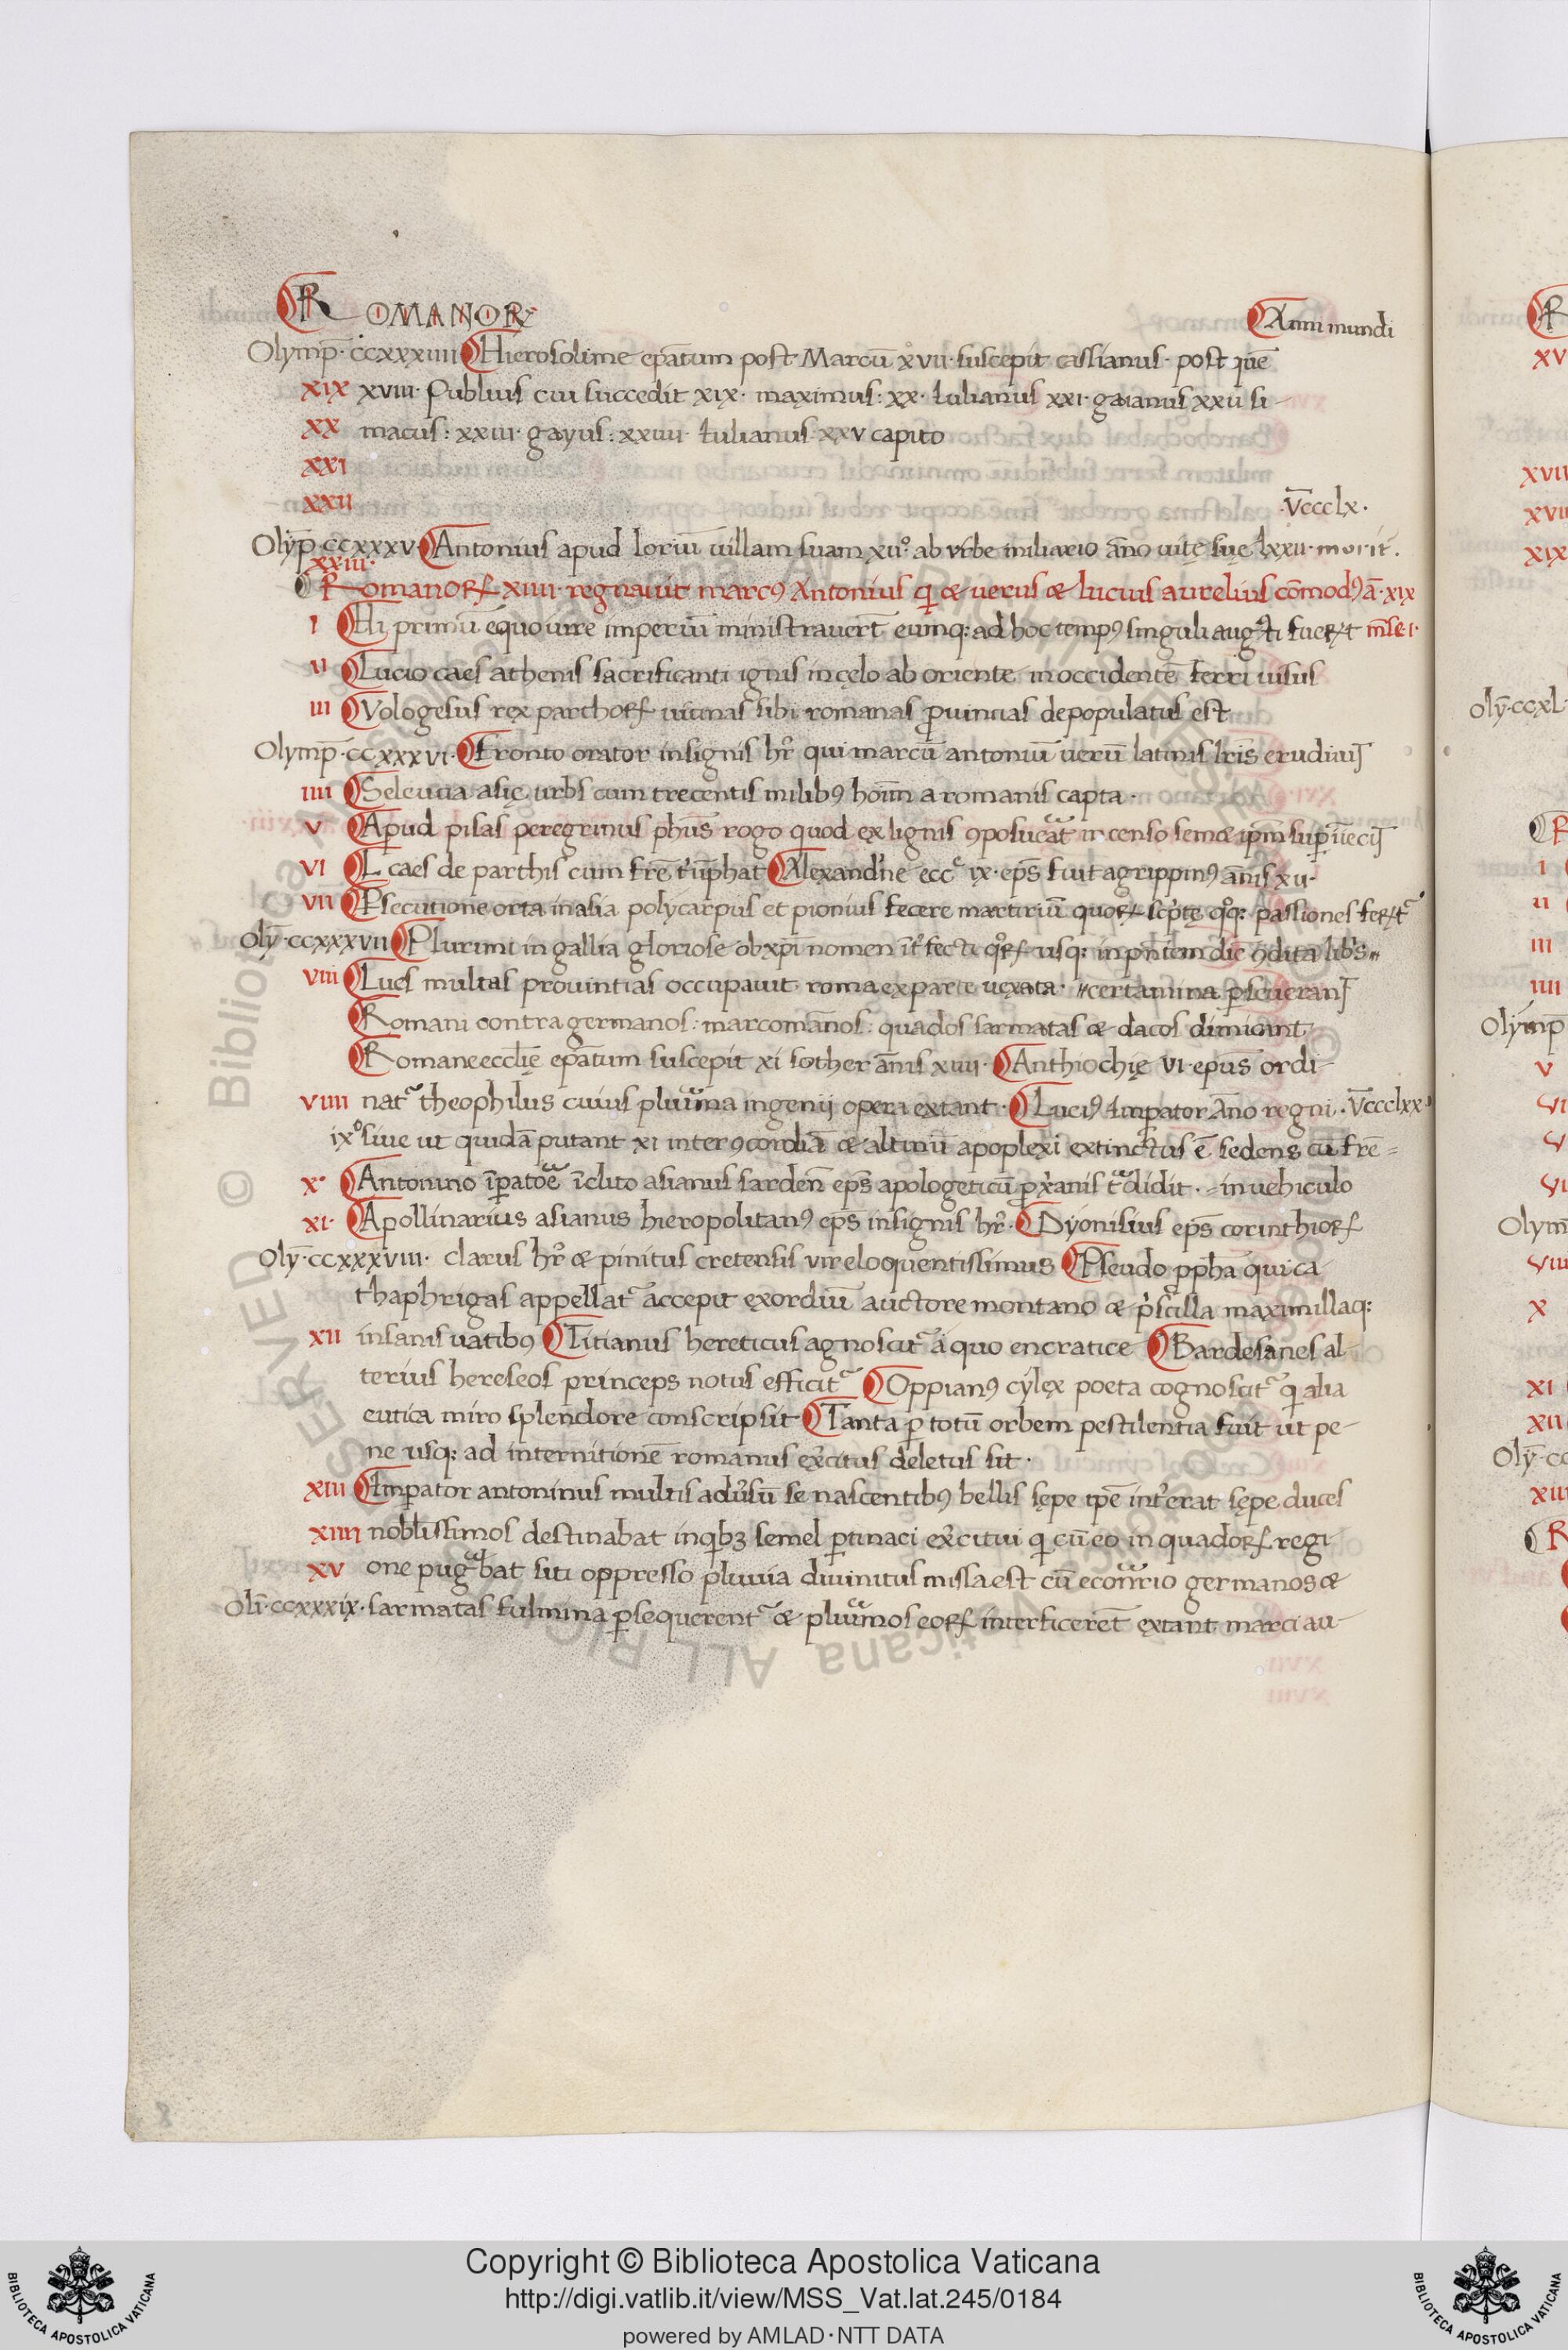 ROMANOR Anni mundi
Olymp̄·ccxxxiiii Hierosolime ep̄atum post Marcū xvii· suscepit cassianus· post quē
xix xviii· Publius cui succedit xix· maximus: xx· Iulianus xxi· gaianus xxii si-
xx macus: xxiii· gayus: xxiiii· Iulianus· xxv capito
xxi
xxii
·V̄ccclx·
Olyp̄·ccxxxv· Antonius apud loriū uillam suam xii° ab vrbe miliario āno uitę suę lxxii· morit̄.
xxiii·
Romanoꝝ xiiii· regnauit marcꝰ Antonius qi & uerus & lucius aurelius cōmodꝰ ā·xix
i Hi primū equo iure imperiū ministrauert̄ cumq: ad hoc tempꝰ singuli augᵃti fueꝝt mse·i·
ii Lucio caes athenis sacrificanti ignis in cęlo ab oriente in occidentē ferri uisus
iii Vologesus rex parthoꝝ uicinas sibi romanas ꝓuincias depopulatus est
Olymp̄·ccxxxvi· Fronto orator insignis hr̄ qui marcū antoniū uerū latinis lr̄is erudiuit
iiii Seleucia asię urbs cum trecentis milibꝰ hoīm a romanis capta·
v Apud pisas peregrinus ph̄us rogo quod ex lignis ꝯposuᵃat incenso semet ip̄m suꝑiecit
vi L caes de parthis cum fr̄e t'ūphat Alexandr'ne ecc' ix· ep̄s fuit agrippinꝰ ānis xii·
vii Ꝑsecutione orta in asia polycarpus et pionius fecere martiriū quoꝝ sc'ptę q°q: passiones feꝝt'
Olȳ·ccxxxvii Plurimi in gallia gloriose ob xpi nomen īt'fecti q°ꝝ usq: in p̄ntem die ꝯdita lib's〃
viii Lues multas prouintias occupauit roma ex parte uexata· 〃certamina ꝑseuerant
Romani contra germanos: marcomānos: quados sarmatas & dacos dimicant
Romane eccl̄ie ep̄atum suscepit xi sother ānis xiiii· Anthiochię vi· epus ordi-
viiii nat' theophilus cuius pluᵃima ingenij opera extant· Luciꝰ Imꝑator āno regni· V̄ccclxx·
ix° siue ut quidā putant xi inter ꝯcordiā & altinū apoplexi extinctus ē sedens cū fr̄e=
x· Antonino īꝑatoē īclito asianus sarden̄ ep̄s apologeticū ꝓ xr'anis tᵃdidit·=in uehiculo
xi· Apollinarius asianus hieropolitanꝰ ep̄s insignis hr̄· Dyonisius ep̄s corinthioꝝ
Olȳ·ccxxxviii· clarus hr̄ & pinitus cretensis vir eloquentissimus Pseudo ꝓph̄a qui ca
thaphrigas appellat' accepit exordiū auctore montano & p'scilla maximillaq:
xii insanis uatibꝰ Titianus hereticus agnoscit' a quo encratice Bardesanes al-
terius hereseos princeps notus efficit' Oppianꝰ cylex poeta cognoscit' qi alia
eutica miro splendore conscripsit Tanta ꝑ totū orbem pestilentia fuit ut pe-
ne usq: ad internitionē romanus ex'citus deletus sit·
xiii Imꝑator antoninus multis adu'sū se nascentibꝰ bellis sępe ip̄e int'erat sępe duces
xiiii nobilissimos destinabat in qibꝫ semel ꝑtinaci ex'citui qi cū eo in quadoꝝ regi
xv one pugᵃbat siti oppresso pluuia diuinitus missa est cū econrio germanos &
Oli·ccxxxix· sarmatas fulmina ꝑsequerent' & pluᵃimos eoꝝ interficerēt extant marci au-
8
Copyright © Biblioteca Apostolica Vaticana
http://digi.vatlib.it/view/MSS_Vat.lat.245/0184
powered by AMLAD·NTT DATA
BIBLIOTECA APOSTOLICA VATICANA
BIBLIOTECA APOSTOLICA VATICANA